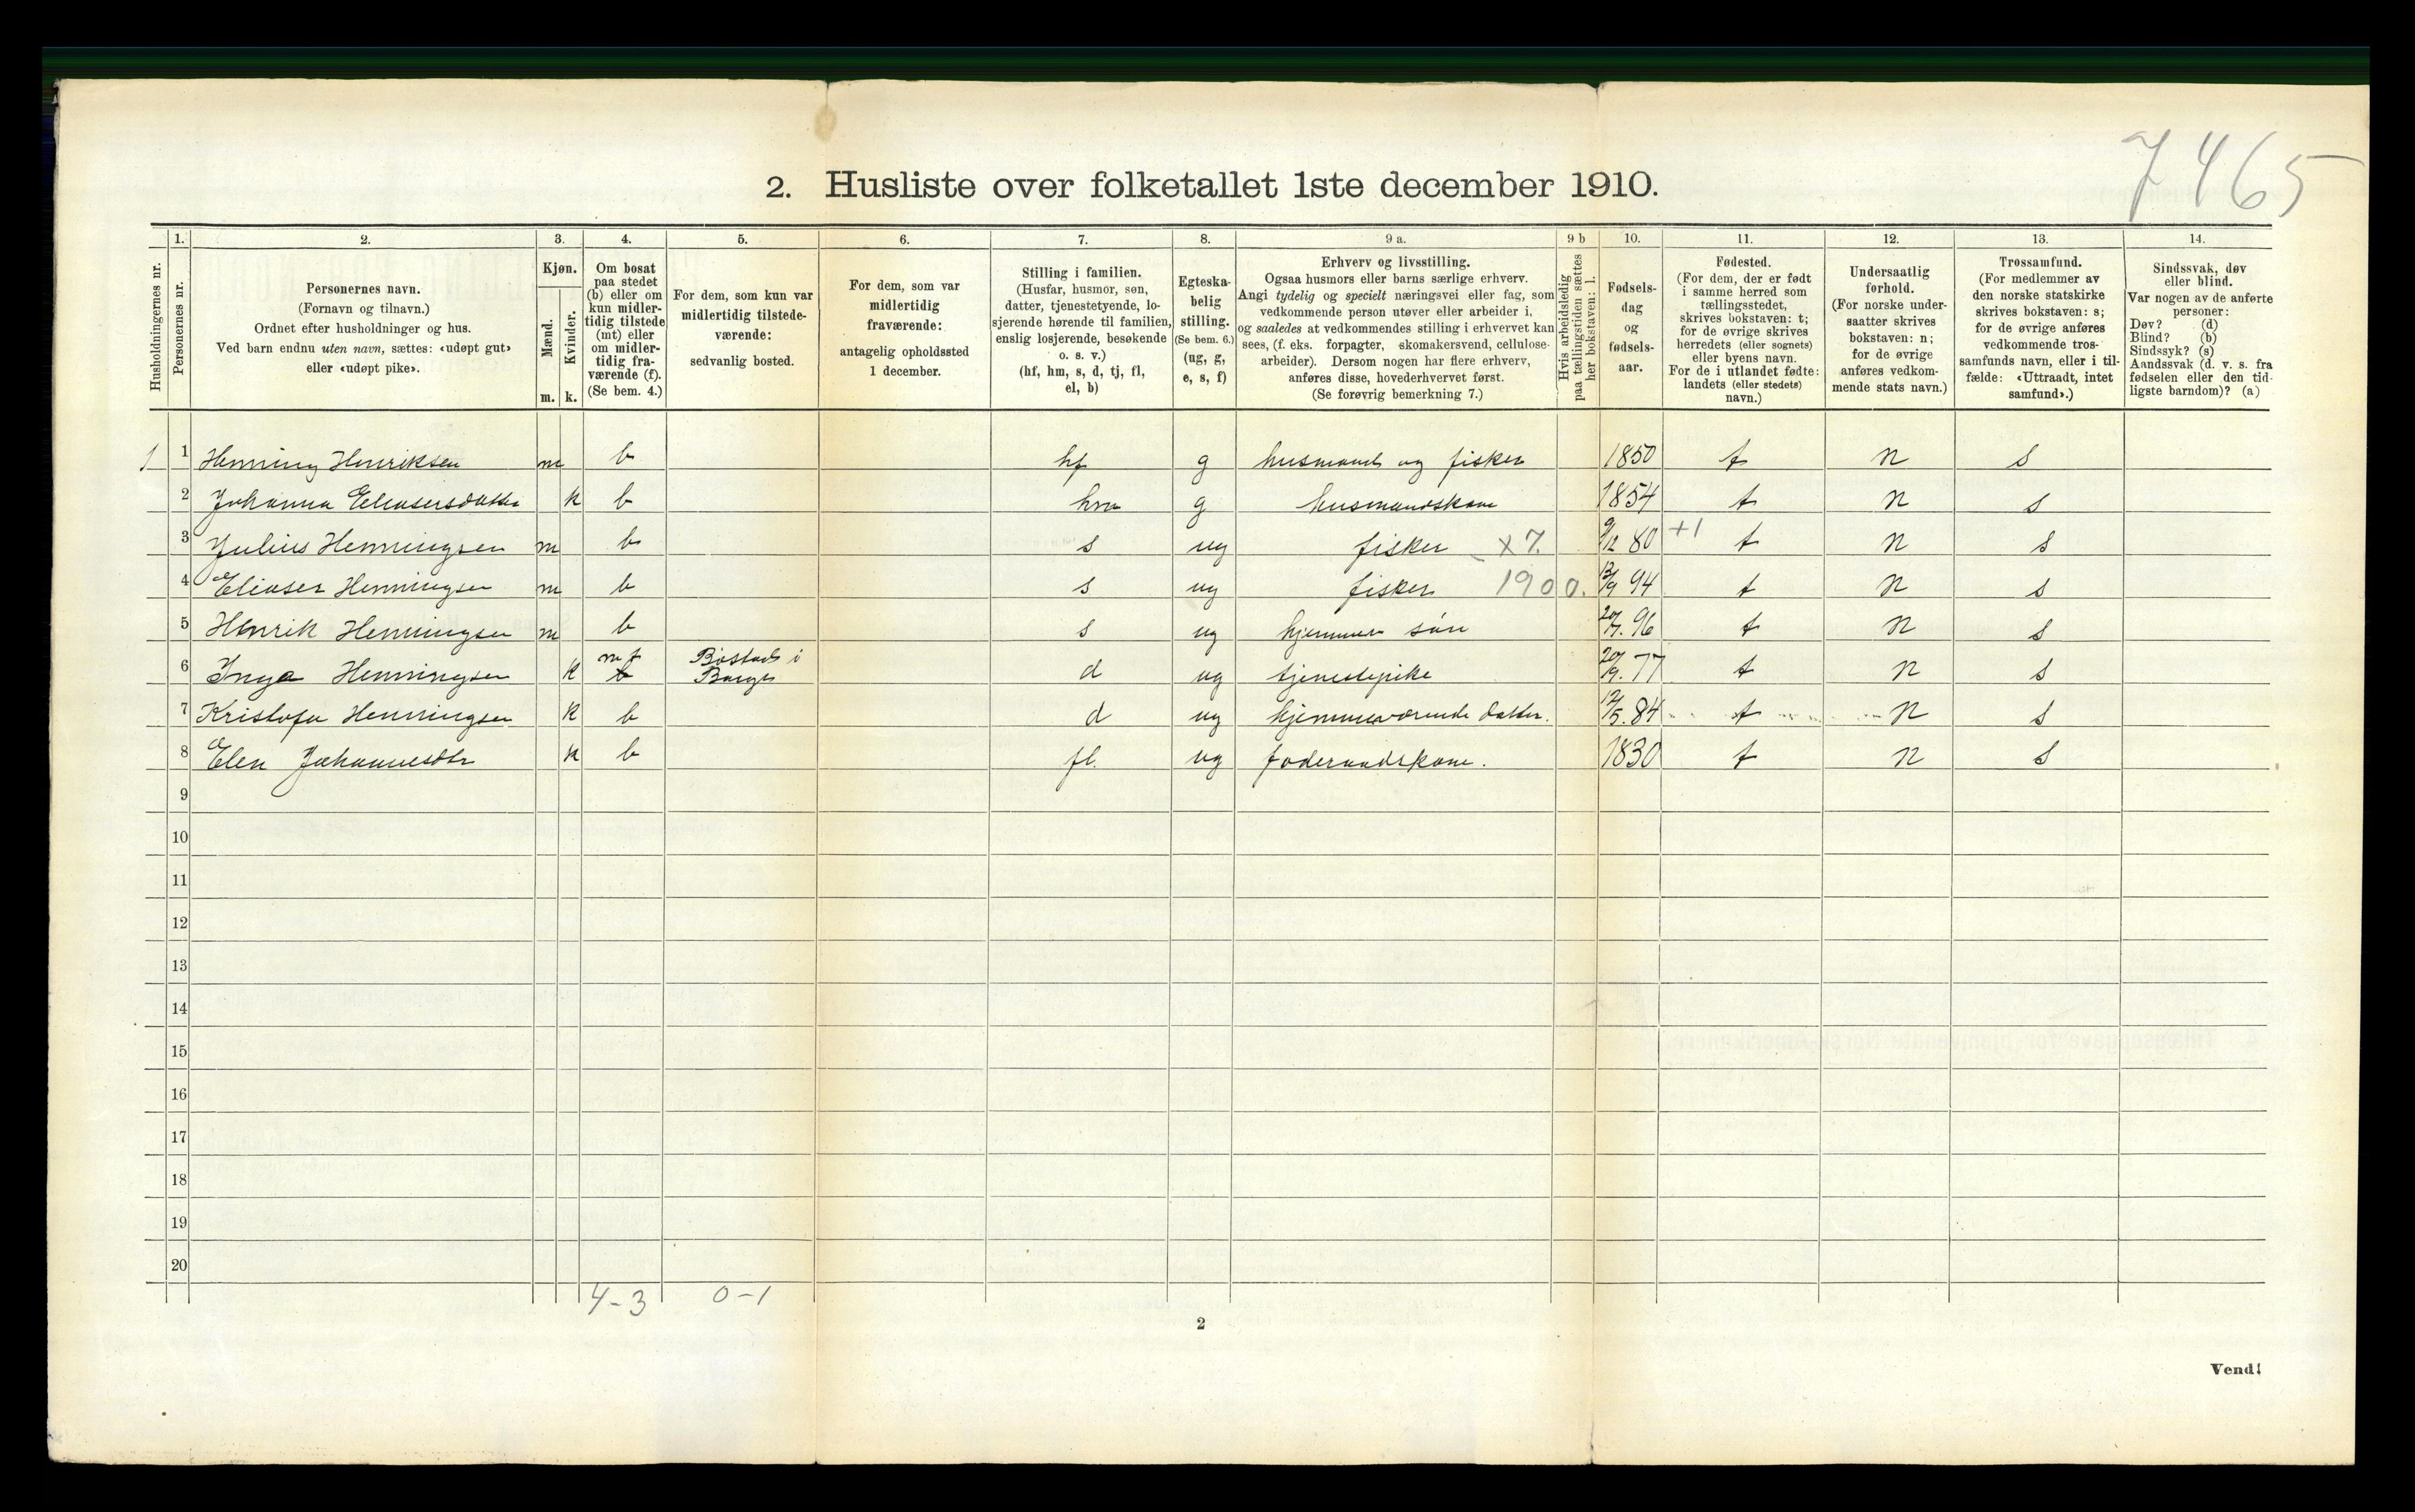 7465
2. Husliste over folketallet 1ste december 1910.
Husholdningernes nr.
1.
Personernes nr.
2.
Personernes navn.
(Fornavn og tilnavn.)
Ordnet efter husholdninger og hus.
Ved barn endnu uten navn, sættes: «udøpt gut»
eller «udøpt pike».
3.
Kjøn.
Mænd.
Kvinder.
m. k.
4.
Om bosat
paa stedet
(b) eller om
kun midler-
tidig tilstede
(mt) eller
om midler-
tidig fra-
værende (f).
(Se bem. 4.)
5.
For dem, som kun var
midlertidig tilstede-
værende:
sedvanlig bosted.
6.
For dem, som var
midlertidig
fraværende:
antagelig opholdssted
1 december.
7.
Stilling i familien.
(Husfar, husmor, søn,
datter, tjenestetyende, lo-
sjerende hørende til familien,
enslig losjerende, besøkende
o. s. v.)
(hf, hm, s, d, tj, fl,
el, b)
8.
Egteska-
belig
stilling.
(Se bem. 6.)
(ug, g,
e, s, f)
9 a.
Erhverv og livsstilling.
Ogsaa husmors eller barns særlige erhverv.
Angi tydelig og specielt næringsvei eller fag, som
vedkommende person utøver eller arbeider i,
og saaledes at vedkommendes stilling i erhvervet kan
sees, (f. eks. forpagter, skomakersvend, cellulose-
arbeider). Dersom nogen har flere erhverv,
anføres disse, hovederhvervet først.
(Se forøvrig bemerkning 7.)
9 b
Hvis arbeidsledig
paa tællingstiden sættes
her bokstaven: l.
10.
Fødsels-
dag
og
fødsels-
aar.
11.
Fødested.
(For dem, der er født
i samme herred som
tællingsstedet,
skrives bokstaven: t;
for de øvrige skrives
herredets (eller sognets)
eller byens navn.
For de i utlandet fødte:
landets (eller stedets)
navn.)
12.
Undersaatlig
forhold.
(For norske under-
saatter skrives
bokstaven: n;
for de øvrige
anføres vedkom-
mende stats navn.)
13.
Trossamfund.
(For medlemmer av
den norske statskirke
skrives bokstaven: s;
for de øvrige anføres
vedkommende tros-
samfunds navn, eller i til-
fælde: «Uttraadt, intet
samfund».)
14.
Sindssvak, døv
eller blind.
Var nogen av de anførte
personer:
Døv? (d)
Blind? (b)
Sindssyk? (s)
Aandssvak (d. v. s. fra
fødselen eller den tid-
ligste barndom)? (a)
1 1 Henning Henriksen m b hf g husmand og fisker 1850 t n s
2 Johanna Eliasersdatter k b hm g husmandskone 1854 t n s
3 Julius Henningsen m b s ug fisker x 7. 9/12 80 +1 t n s
4 Elieser Henningsen m b s ug fisker 1900. 13/9 94 t n s
5 Henrik Henningsen m b s ug hjemmev søn 20/7. 96 t n s
6 Inga Henningsen k mt b Bøstad i Borge d ug tjenestepike 20/9. 77 t n s
7 Kristofa Henningsen k b d ug hjemmeværende datter. 12/5. 84 t n s
8 Elen Johannesdtr k b fl. ug foderaadskone. 1830 t n s
9
10
11
12
13
14
15
16
17
18
19
20
4-3 0-1
2
Vend!